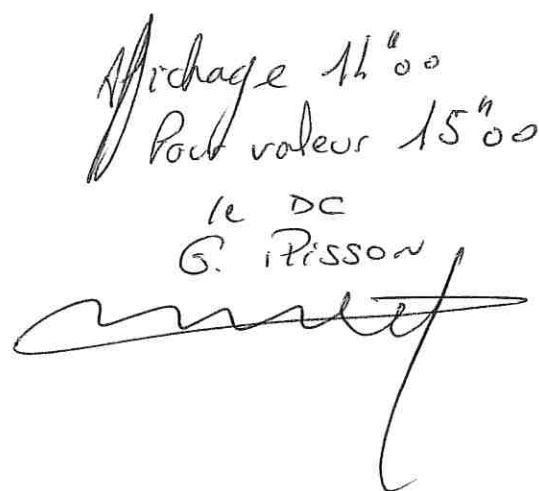 Affichage 14"00
Pour valeur 15"00
le DC
G. PISSON